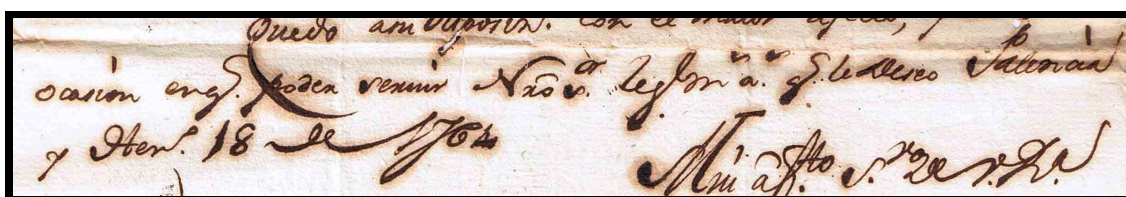 Quedo a mi disposin. con el maior afecto, y
ocasion en q. poder servir Nro Sr. le g. m. a. q. le deseo Palencia
y Hen.o 18 de 1764
Mui af.to S.r de v.